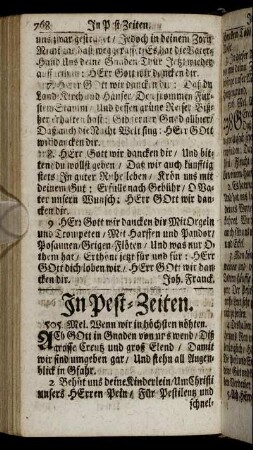 768 In Pest-Zeiten.
uns zwar gestrafet / Jedoch in deinem Zorn
Nicht gar hast weggerafft: Es hat die Vaters-
Hand Uns deine Gnaden-Thür Jetzt wieder
auffgethan: HErr Gott wir dancken dir.
7. HErr Gott wir dancken dir: Daß du
Land, Kirch und Häuser, Den frommen Für-
sten-Stamm / Und dessen grüne Reiser Bißher
erhalten hast: Gib ferner Gnad allhier/
Daß auch die Nachwelt sing: HErr GOtt
wir dancken dir.
8. HErr Gott wir dancken dir / Und bit-
ten du wollst geben / Daß wir auch künfftig
stets In guter Ruhe leben / Krön uns mit
deinem Gut: Erfülle nach Gebühr / O Va-
ter unsern Wunsch: HErr GOtt wir dan-
cken dir.
9. HErr Gott wir dancken dir Mit Orgeln
und Trompeten / Mit Harffen und Pandor/
Posaunen/Geigen-Flöten / Und was nur O-
them hat / Erthöne jetzt für und für: HErr
GOtt dich loben wir / HErr GOtt wir dan-
cken dir. Joh. Franck.
In Pest-Zeiten.
505. Mel. Wenn wir in höchsten nöhten.
ACh GOtt in Gnaden von uns wend / Diß
grosse Creutz und groß Elend / Damit
wir sind umgeben gar / Und stehn all Augen-
blick in Gfahr.
2 Behüt uns deine Kinderlein / Um Christi
unsers HErren Pein / Für Pestilentz und
schnel-